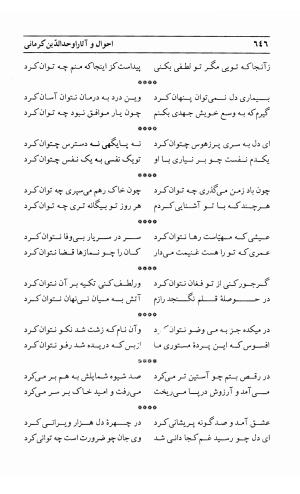 ۶۴۶ احوال و آثار اوحدالدّین کرمانی
زآنجاکه تویی مگر تو لطفی بکنی پیداست کز اینجا که منم چه توان کرد
****
بیماری دل نمی‌توان پنهان کرد وین درد به درمان نتوان آسان کرد
گیرم که به وسع خویش جهدی بکنم چون یار موافق نبود چه توان کرد
****
ای دل به سری پرزهوس چتوان کرد نه پایگهی نه دسترس چتوان کرد
یکدم نفست چو بر نیاری با او تو یک نفس به یک نفس چتوان کرد
****
چون باد زمن می‌گذری چه توان کرد چون خاک رهم می‌سپری چه توان کرد
هرچند که با تو آشنایی کردم هر روز تو بیگانه تری چه توان کرد
****
عیشی که مهیّاست رها نتوان کرد سر در سر یار بی‌وفا نتوان کرد
عمری که تو را هست غنیمت می‌دار کان را چو نمازها قضا نتوان کرد
****
گر جور کنی از تو فغان نتوان کرد ور لطف کنی تکیه بر آن نتوان کرد
در حوصلهٔ قلم نگنجد رازم آتش به میان نی نهان نتوان کرد
****
در میکده جز به می وضو نتوان کرد وآن نام که زشت شد نکو نتوان کرد
افسوس که این پردهٔ مستوری ما از بس که دریده شد رفو نتوان کرد
****
در رقص بتم چو آستین تر می‌کرد صد شیوه شمایلش به هم بر می‌کرد
می آمد و آرزوش در پا می‌ریخت می‌رفت و امید خاک بر سر می‌کرد
****
عشق آمد و صد گونه پریشانی کرد در چهرهٔ دل هزار ویرانی کرد
ای دل چو رسید غم کجا دانی شد وی جان چو ضرورت است چه توانی کرد